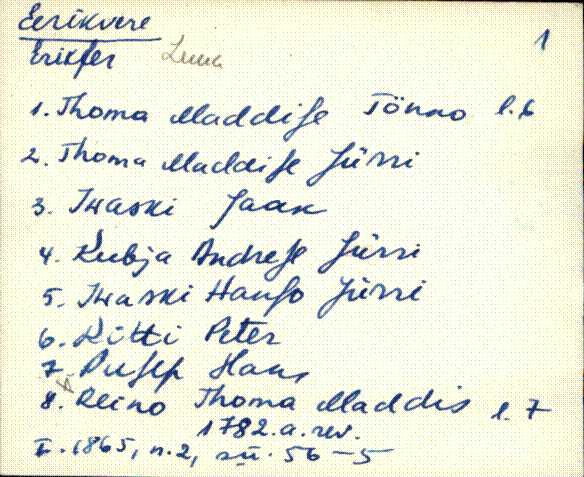 Eerikvere
1
Erikfer Luua
1. Thoma Maddise Tönno l.6
2. Thoma Maddise Jürri
3. Iwaski Jaak
4. Kubja Andrese Jürri
5. Iwaski Hanso Jürri
6. Kitti Peter
7. Pusep Hans
8. Reino Thoma Maddis l. 7
1782.a. rev.
F. 1865, n.2, sü. 56-5